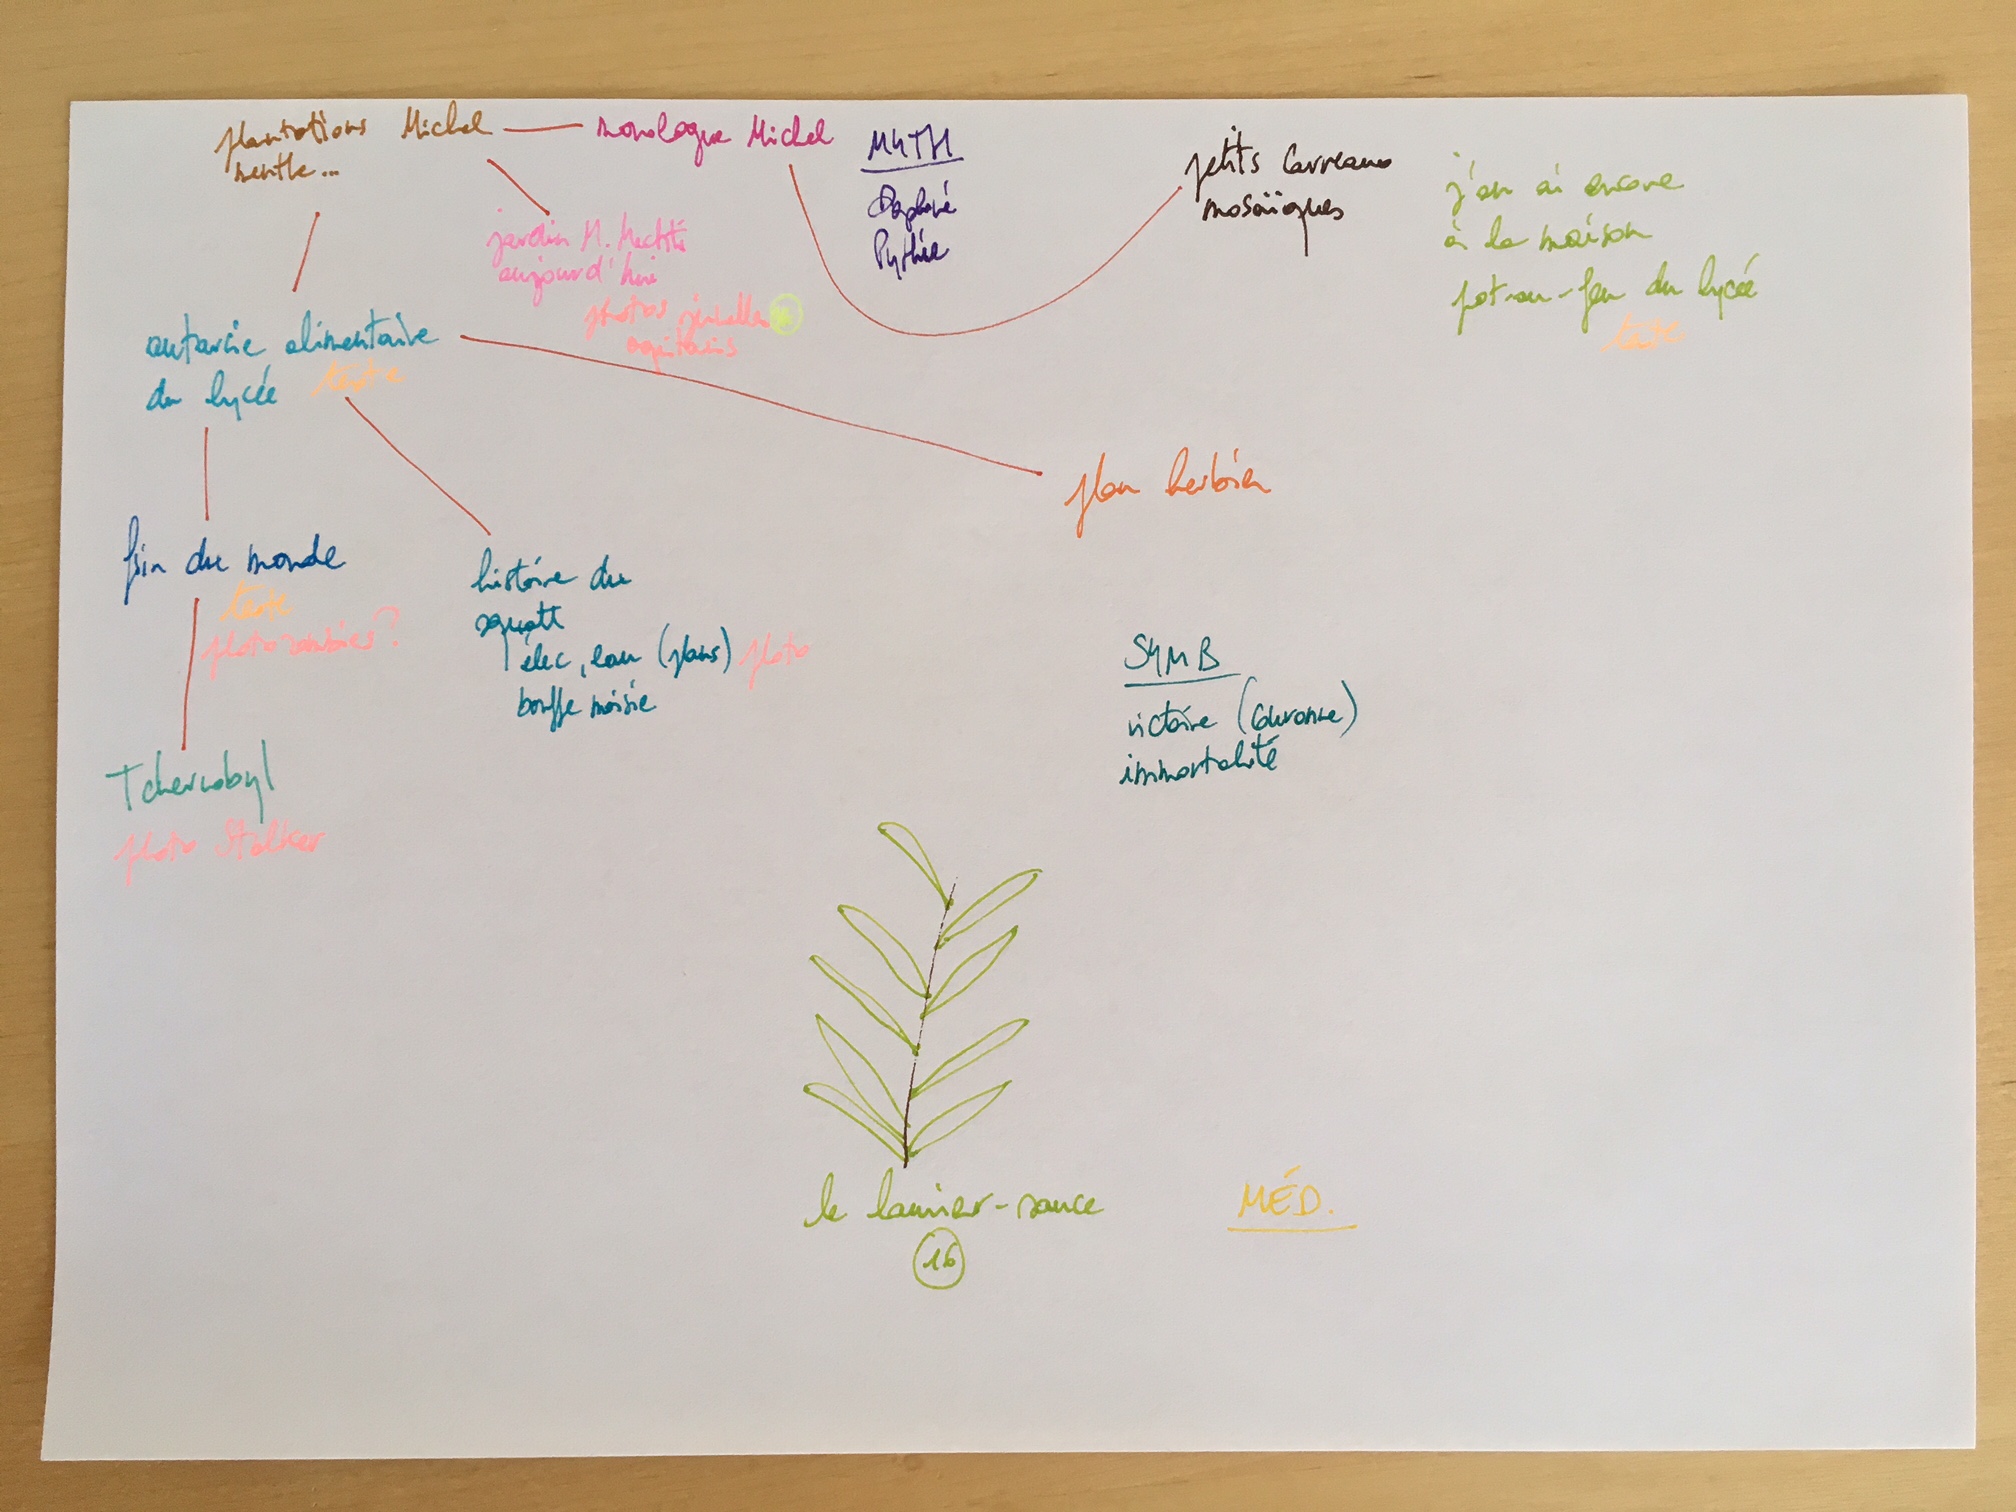 plantations Michel
menthe...
monologue Michel
MYTH
Daphné
Pythie
petits carreaux
mosaïques
j'en ai encore
à la maison
pot-au-feu du lycée
texte
jardin M. Mechti
aujourd'hui
photos jumelles
autarcie alimentaire
du lycée texte
plan herbier
fin du monde
texte
photo zombies?
histoire du
squatt
élec, eau (plans) photo
bouffe moisie
SYMB
victoire (couronne)
immortalité
Tchernobyl
photo Stalker
le laurier-sauce
16
MÉD.